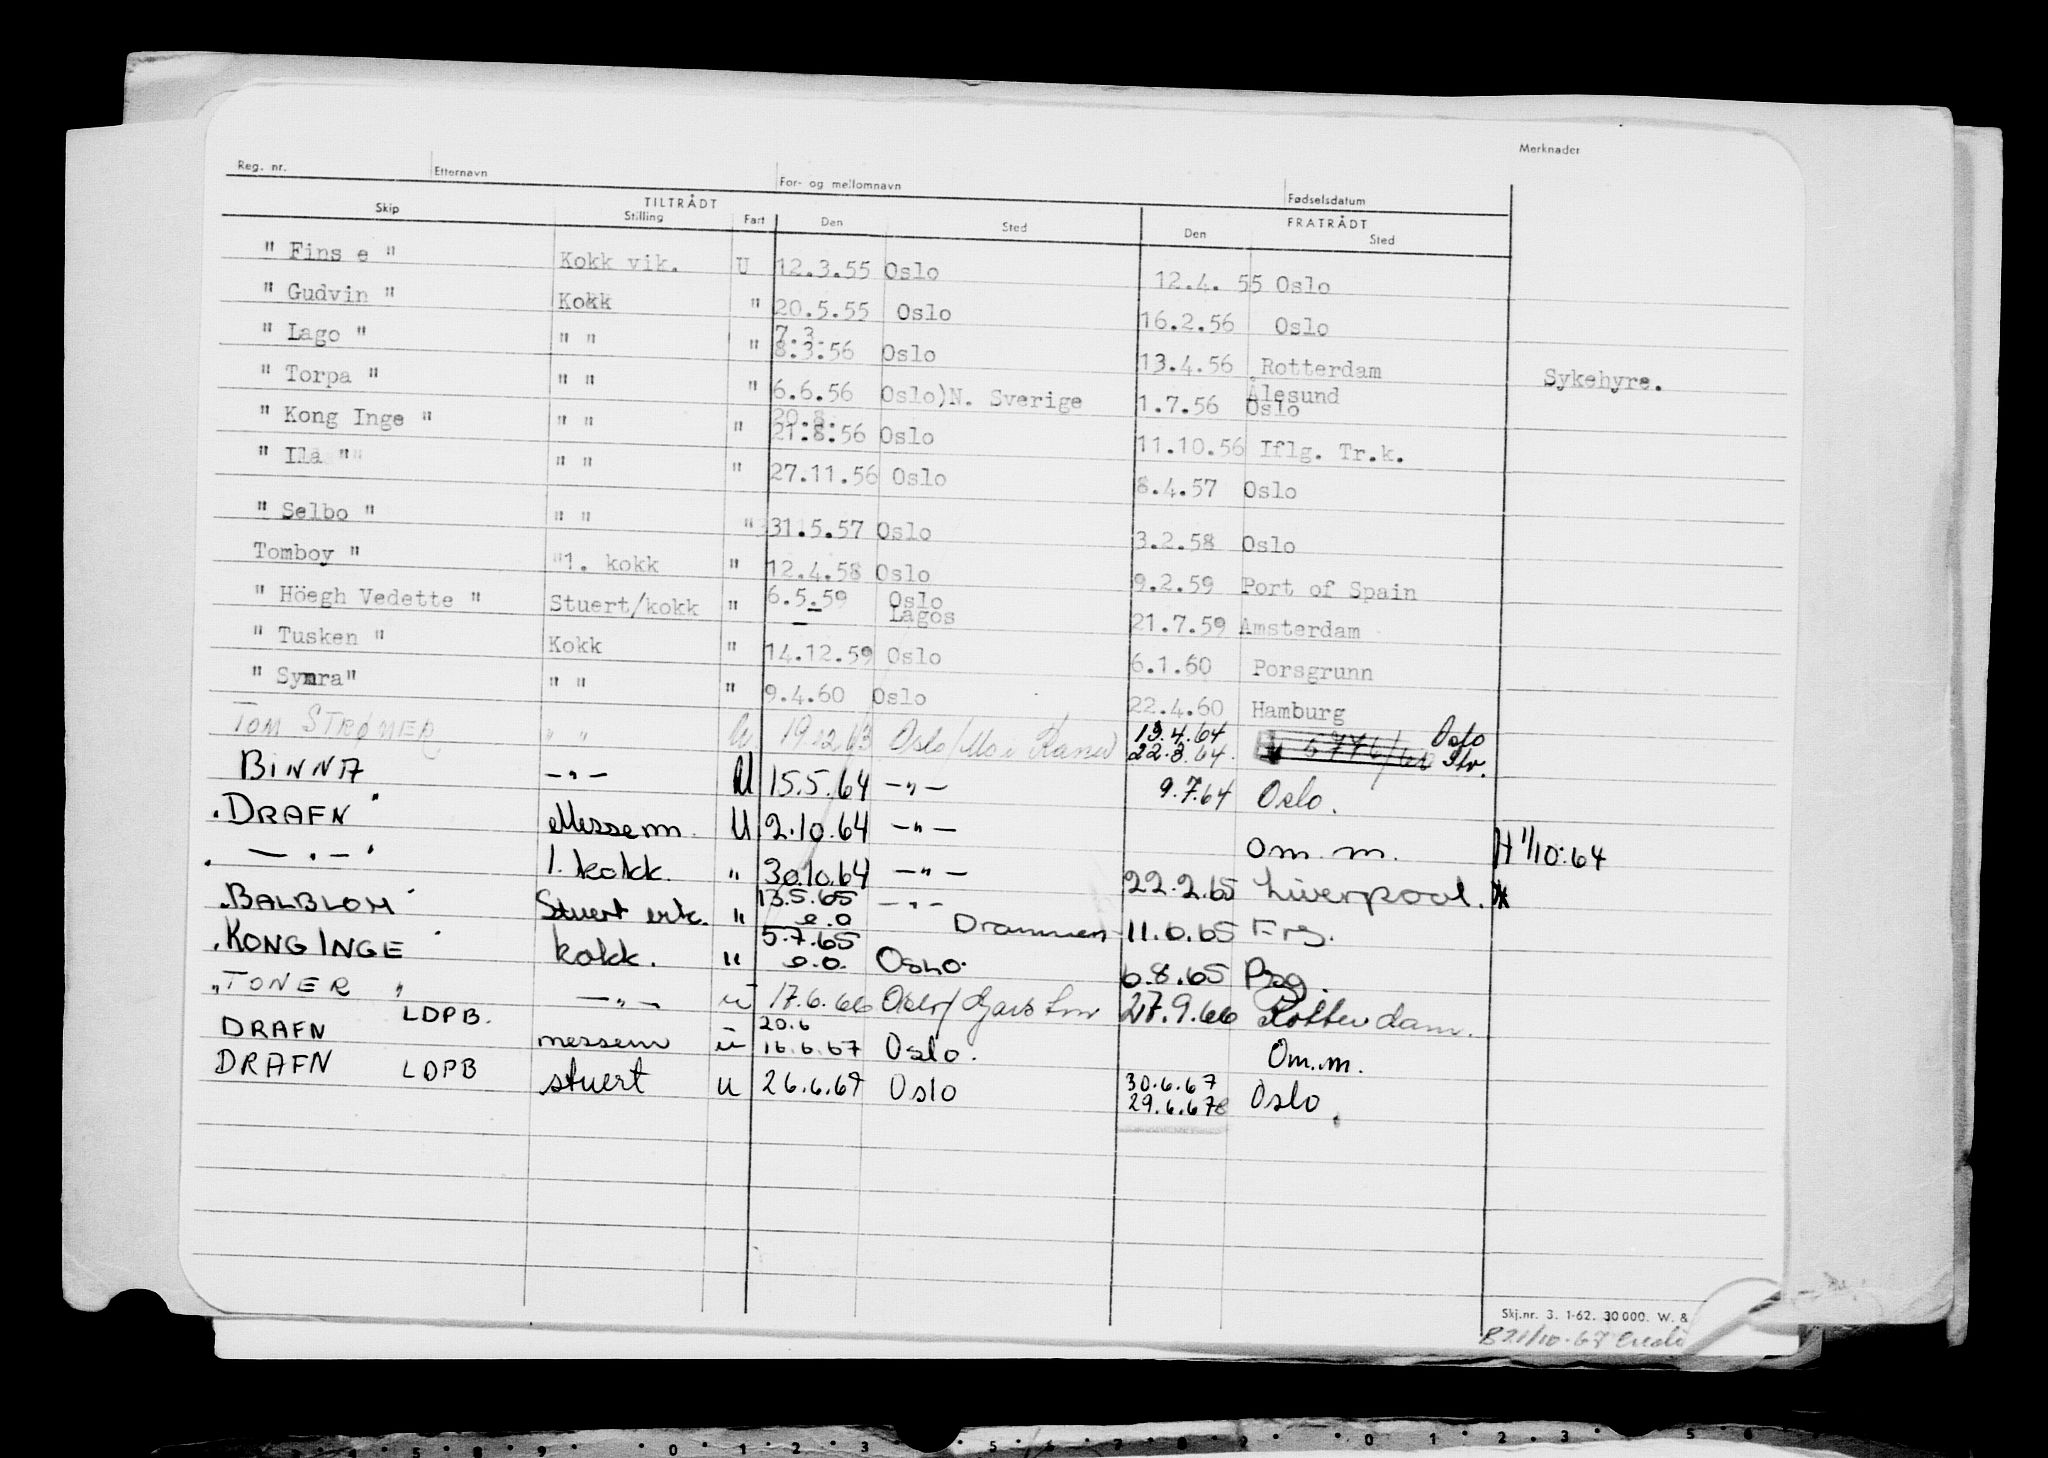 Merknader
Reg. nr. Etternavn For- og mellomnavn Fødselsdatum
TILTRÅDT FRATRÅDT
Skip Stilling Fart Den Sted Den Sted
" Fins e " Kokk vik. U 12.3.55 Oslo 12.4. 55 Oslo
" Gudvin " Kokk " 20.5.55 Oslo 16.2.56 Oslo
7.3.
" Lago " " " " 8.3.56 Oslo 13.4.56 Rotterdam Sykehyre.
Ålesund
" Torpa " " " " 6.6.56 Oslo)N. Sverige 1.7.56 Oslo
20.8.
" Kong Inge " " " " 21.8.56 Oslo 11.10.56 Iflg. Tr.k.
" Ila "" " " " 27.11.56 Oslo 8.4.57 Oslo
" Selbo " " " " 31.5.57 Oslo 3.2.58 Oslo
Tomboy " "1. kokk " 12.4.58 Oslo 9.2.59 Port of Spain
" Höegh Vedette " Stuert/kokk " 6.5.59 Oslo 21.7.59 Amsterdam
Lagos
" Tusken " Kokk " 14.12.59 Oslo 6.1.60 Porsgrunn
" Symra" " " " 9.4.60 Oslo 22.4.60 Hamburg
TOM STRØMER " " U 19.12.63 Oslo/Mo i Rana 19.4.64 Oslo
22.3.64. 5776/64 Str.
BINNA -"- U 15.5.64 -"- 9.7.64 Oslo.
"DRAFN" Messem. U 2.10.64 -"- Om. m. H 1/10.64
" -"- " 1. kokk. " 30.10.64 -"- 22.2.65 Liverpool.
"BALBLOM" Stuert erk. " 13.5.65 -"-
e.o Drammen 11.6.65 Frg.
"KONG INGE" kokk. " 5.7.65
e.o. Oslo. 6.8.65 Psg.
"TONER" -"- u 17.6.66 Oslo/ 27.9.66 Rotterdam.
DRAFN LDPB. messem u 20.6
16.6.67 Oslo. Om.m.
DRAFN LDPB stuert u 26.6.67 Oslo 30.6.67
29.6.67 Oslo.
Skj.nr. 3. 1-62. 30 000. W. &
B21/10.67
4 5 8 9 0 1 2 3 5 6 7 8 9 0 1 2 3 5 6